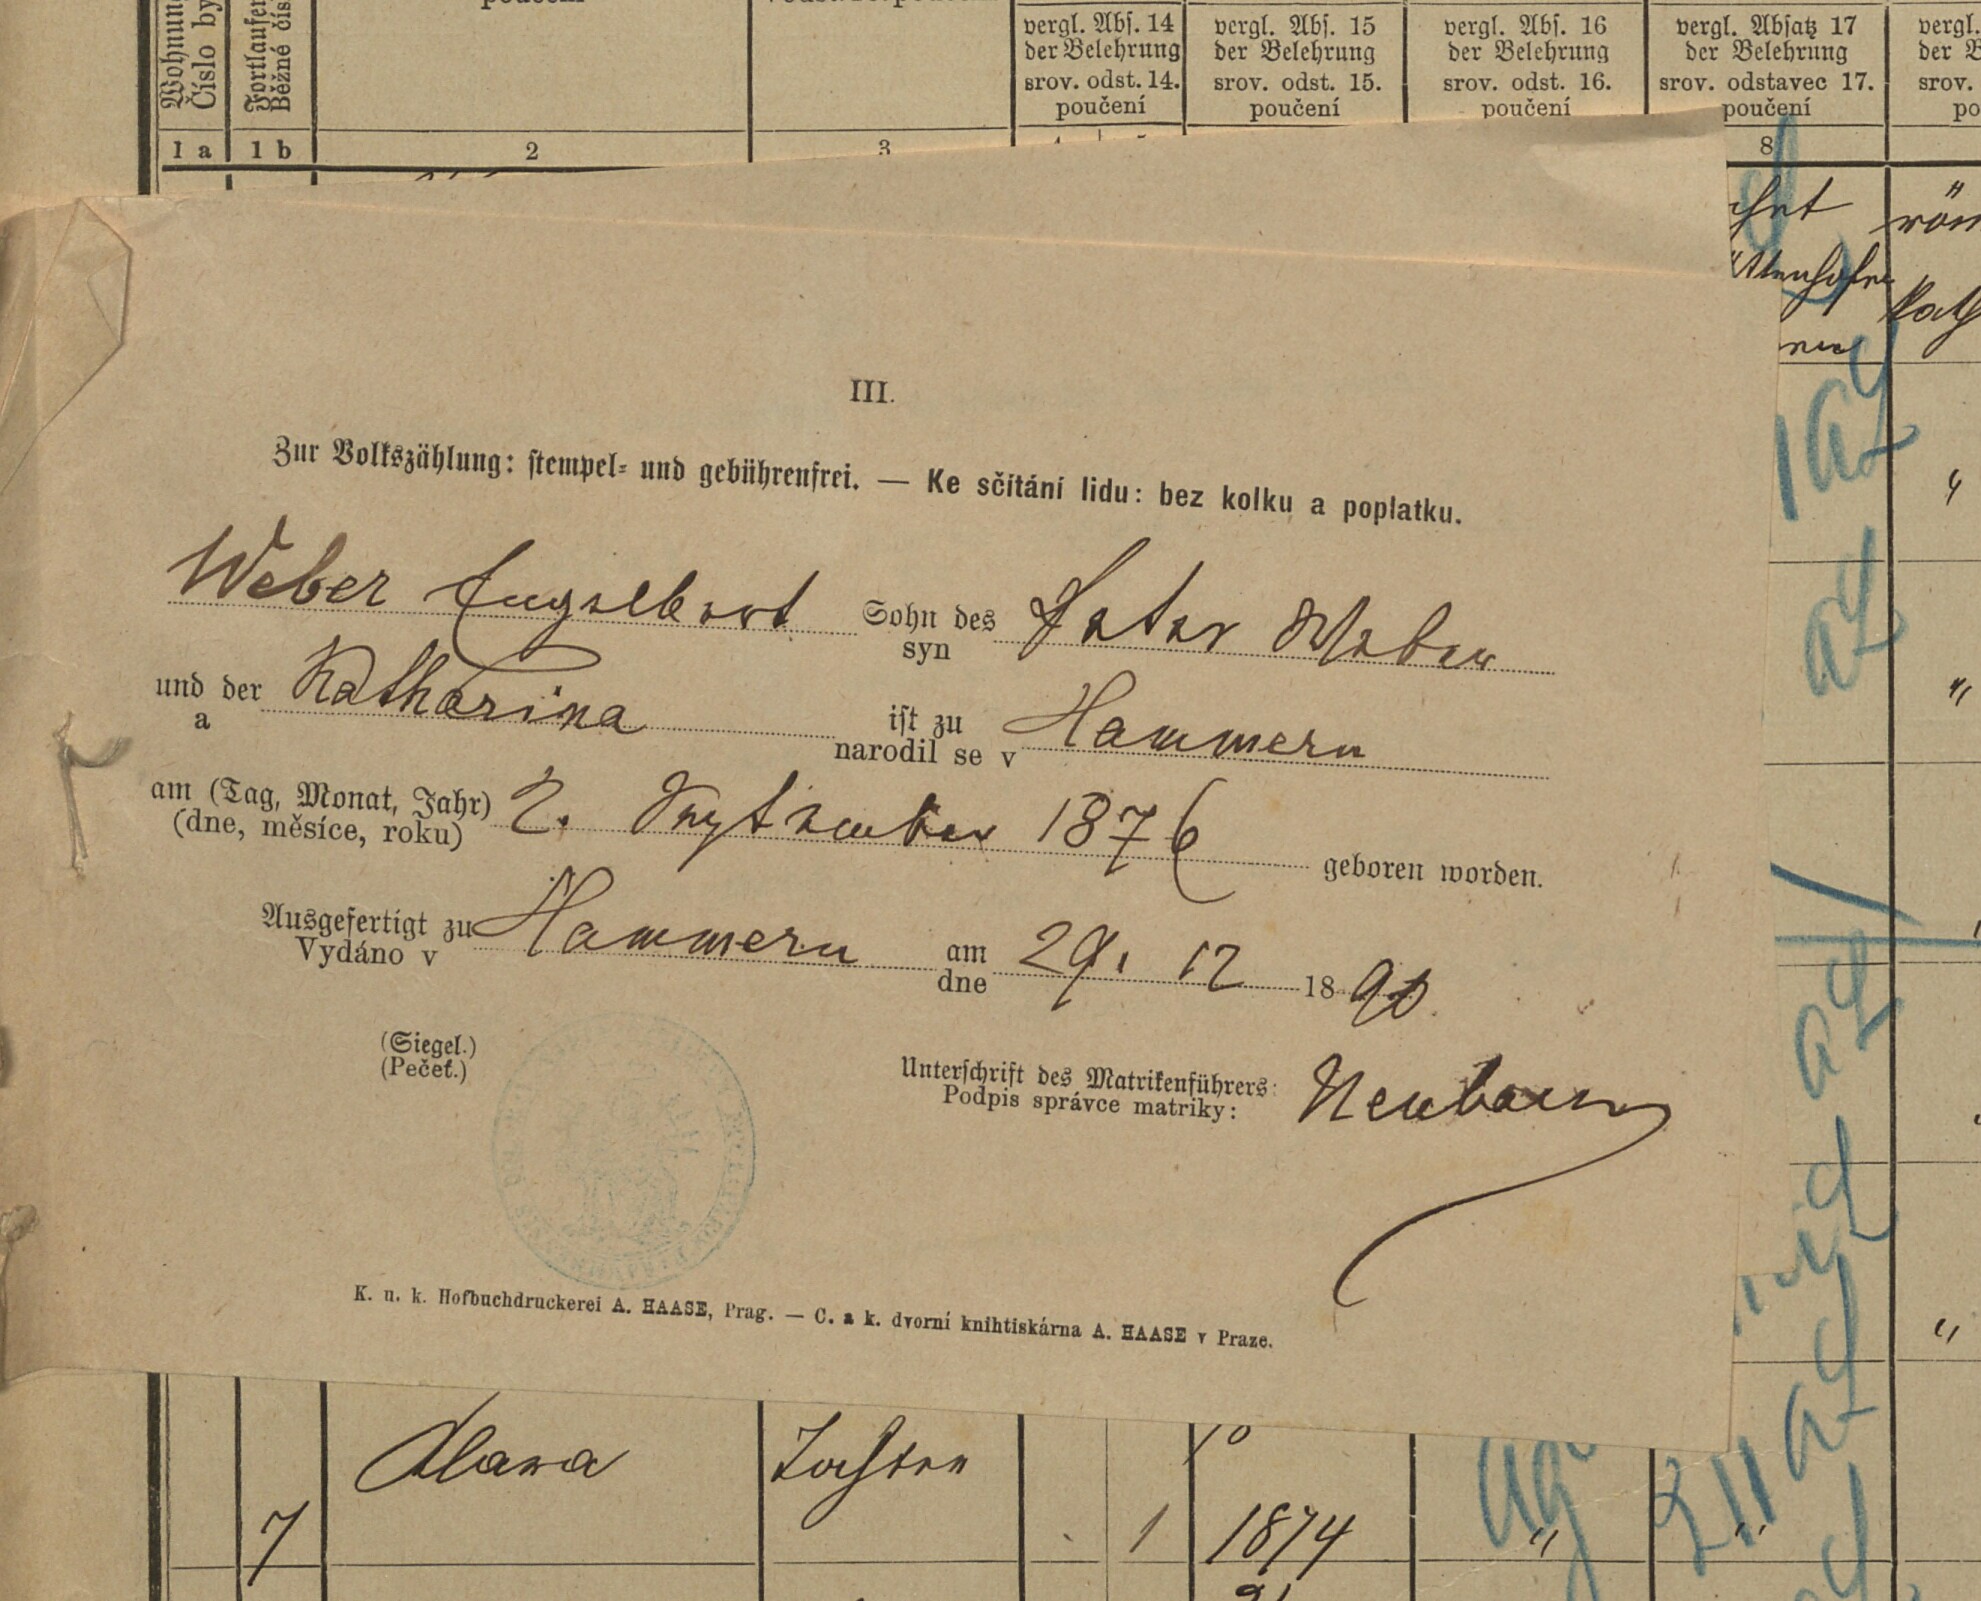 Wohnung
Číslo by
Fortlaufen
Běžné čís
poučení
vergl. Abs. 14
der Belehrung
srov. odst. 14.
poučení
vergl. Abs. 15
der Belehrung
srov. odst. 15.
poučení
vergl. Abs. 16
der Belehrung
srov. odst. 16.
poučení
vergl. Absatz 17
der Belehrung
srov. odstavec 17.
poučení
vergl.
der B
srov.
po
1 a 1 b 2 3 8
röm
kath
III.
Zur Volkszählung: stempel- und gebührenfrei. — Ke sčítání lidu: bez kolku a poplatku.
Weber Engelbert Sohn des Peter Weber
syn
und der Katharina ist zu Hammern
a narodil se v
am (Tag, Monat, Jahr) 2. September 1876
(dne, měsíce, roku) geboren worden.
Ausgefertigt zu Hammern am 29. 12 1890.
Vydáno v dne
(Siegel.)
(Pečeť.)
Unterschrift des Matrikenführers: Neubauer
Podpis správce matriky:
K. u. k. Hofbuchdruckerei A. HAASE, Prag. — C. a k. dvorní knihtiskárna A. HAASE v Praze.
Tochter
7 1 1874 " "